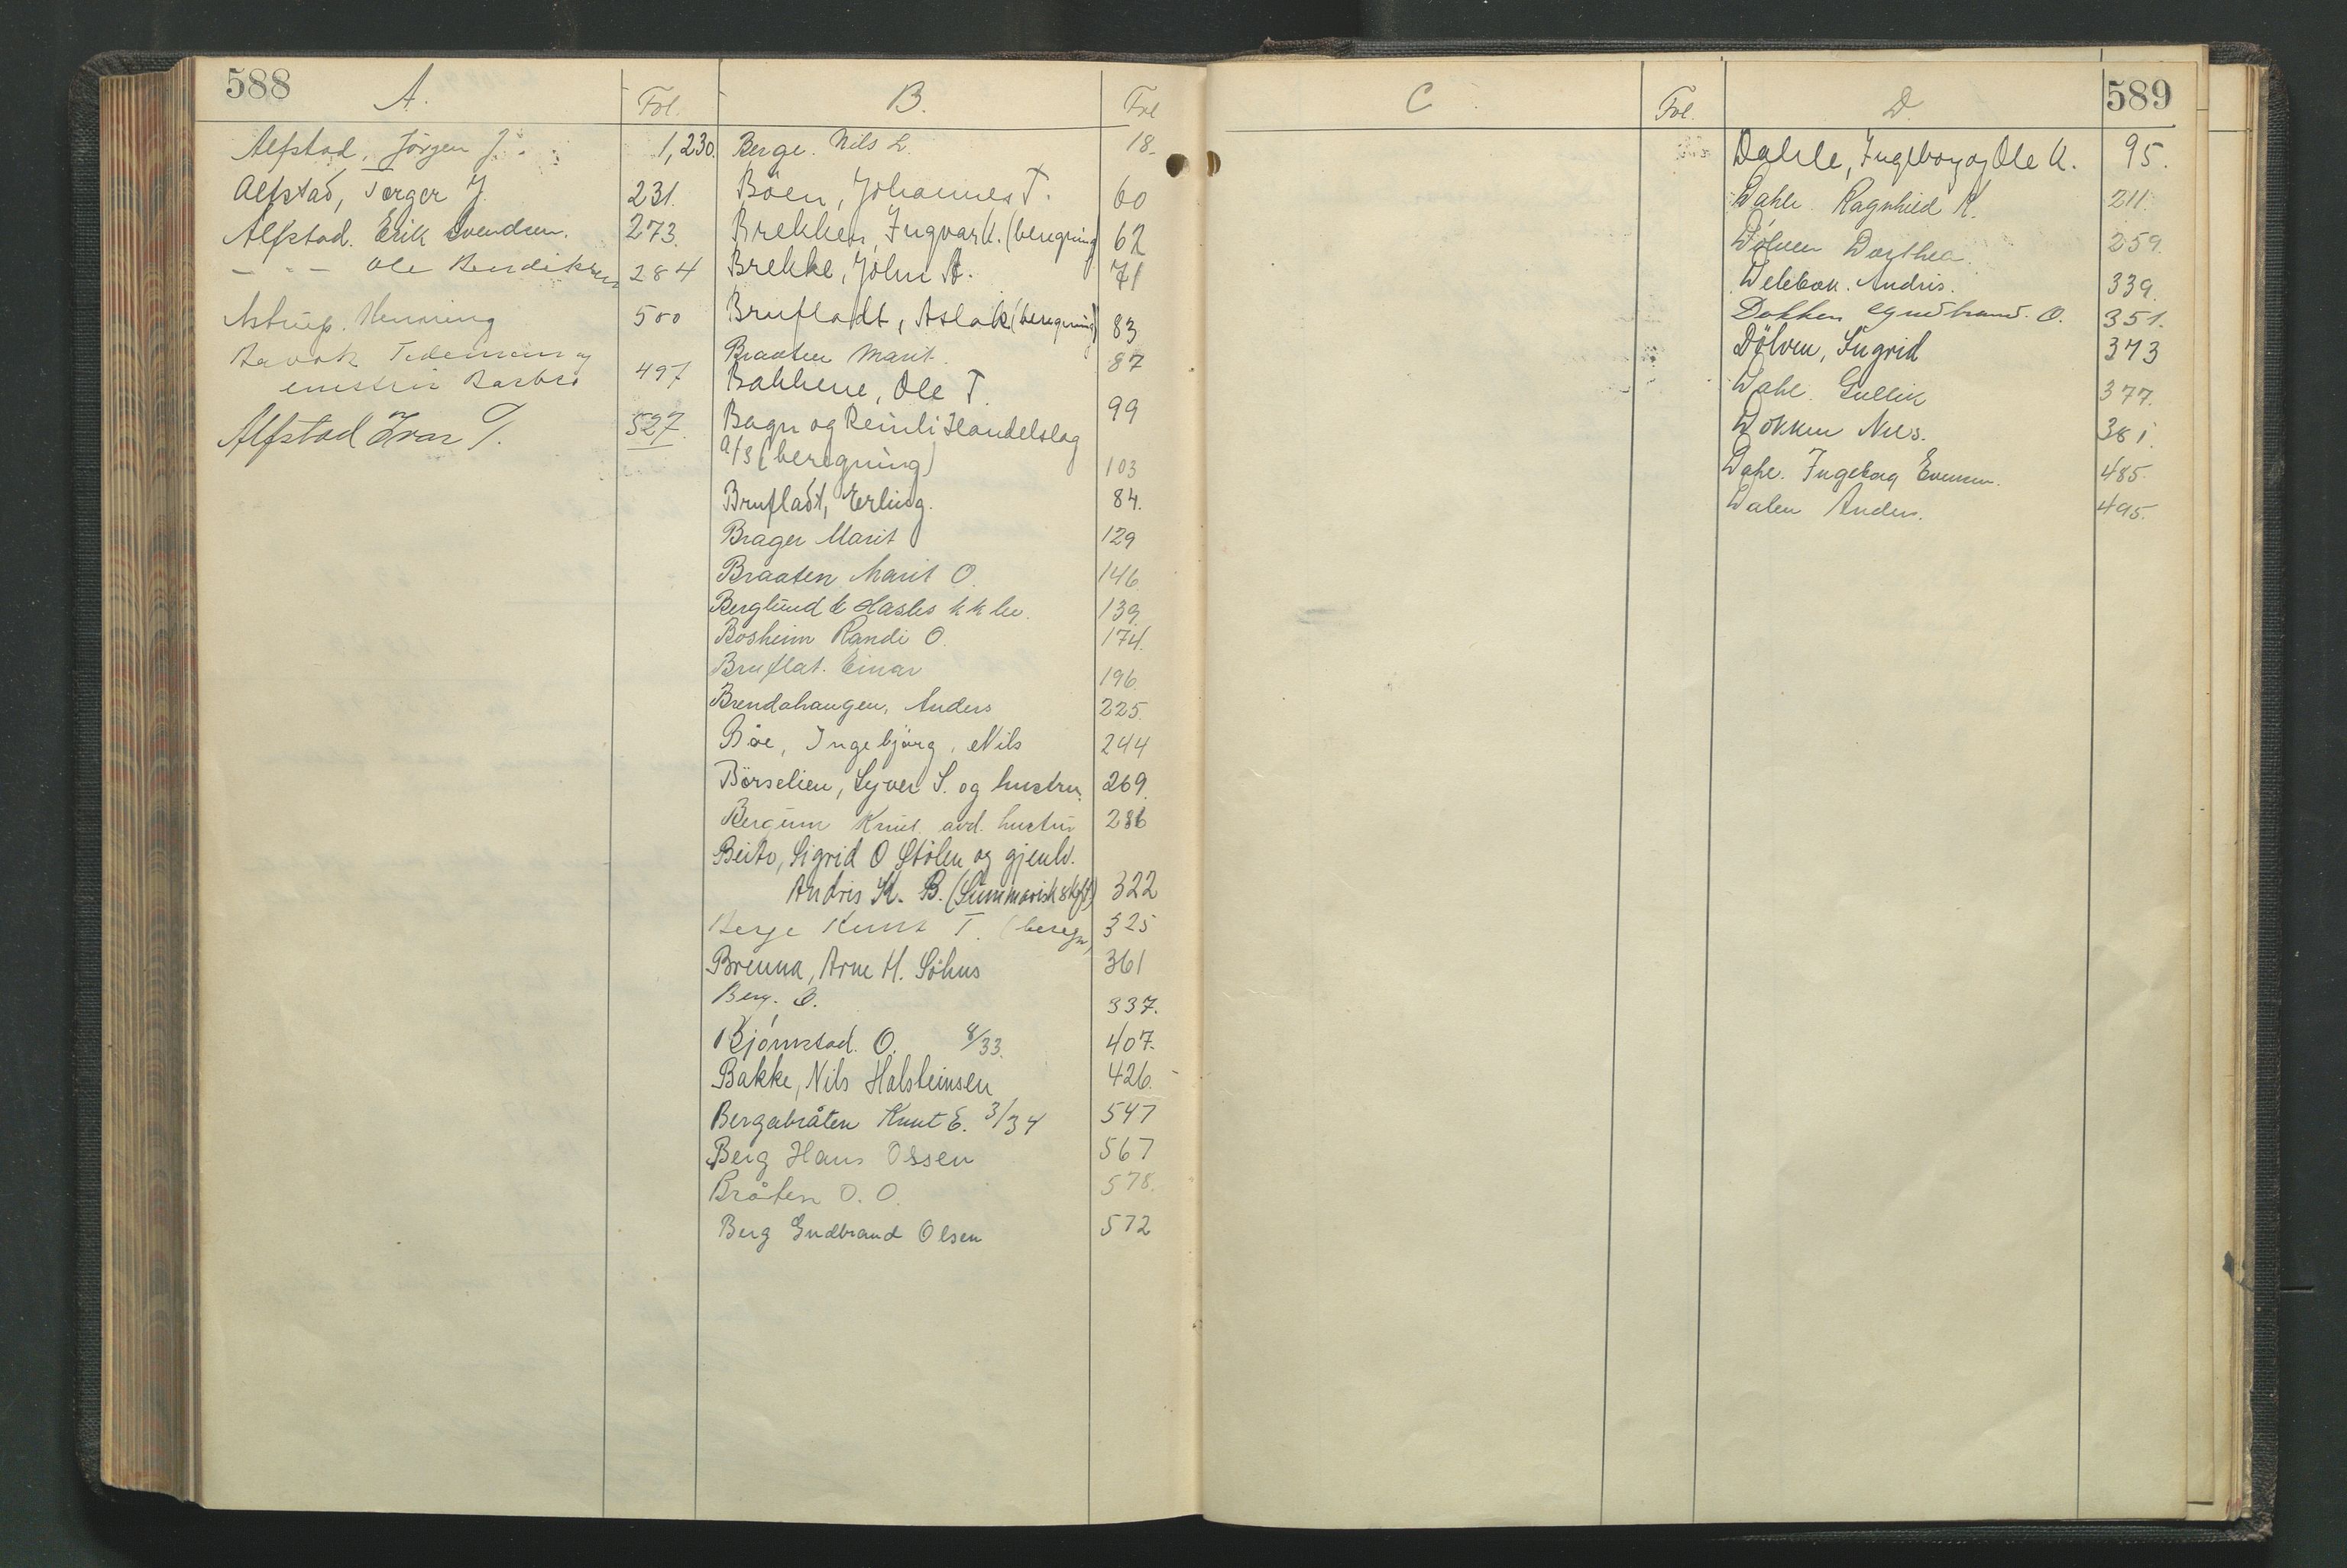 588
A.
Fol.
B.
Fol
Alfstad, Jörgen J.
1,230.
Alfstad, Torger J.
231.
Alfstad. Erik Svendsen.
273.
— " — Ole Bendiksen
284
Astrup. Henning
500
Tidemann og
Barbro
497
Alfstad Ivar T.
527.
Berge. Nils L.
18.
Böen, Johannes T.
60
Brekken, Ingvar K. (beregning)
62
Brekke, John A.
71
Brufladt, Aslak (beregning)
83
Braaten Marit
87
Bakkene, Ole T.
99
Bagn og Reinli Handelslag
a/s (beregning)
103
Brufladt, Erling.
84.
Brager Marit
129
Braaten Marit O.
146
Berglund & Hasles
139.
Bosheim Randi O.
174.
Bruflat. Einar
196
Brendahaugen, Anders
225.
Böe, Ingebjörg, Nils
244
Börselien, Syver S. og hustru.
269.
Bergum Knut avd. hustru
286
Beito, Sigrid O Stölen og gjenlv.
Andris K. B. (Summarisk skift)
322
Berge Knut T. (beregn)
325
Brenna, Arne H. Söhus
361
Berg. O.
337.
Björnstad. O. 8/33.
407.
Bakke, Nils Halsteinsen
426.
Bergabråten Knut E. 3/34
547
Berg Hans Olssen
567
Bråten O. O.
578.
Berg Gudbrand Olsen
572
589
C
Fol.
D.
Dahle, Ingeborg og Ole K.
95.
Dahle Ragnhild K.
211.
Dölven Dorthea.
259.
Andris.
339.
Dokken Gudbrand. O.
351.
Dölven, Sigrid
373
Dahl. Gullik
377.
Dokken Nils.
381.
Dahl. Ingeborg Evensen.
485.
Dalen Anders.
495.